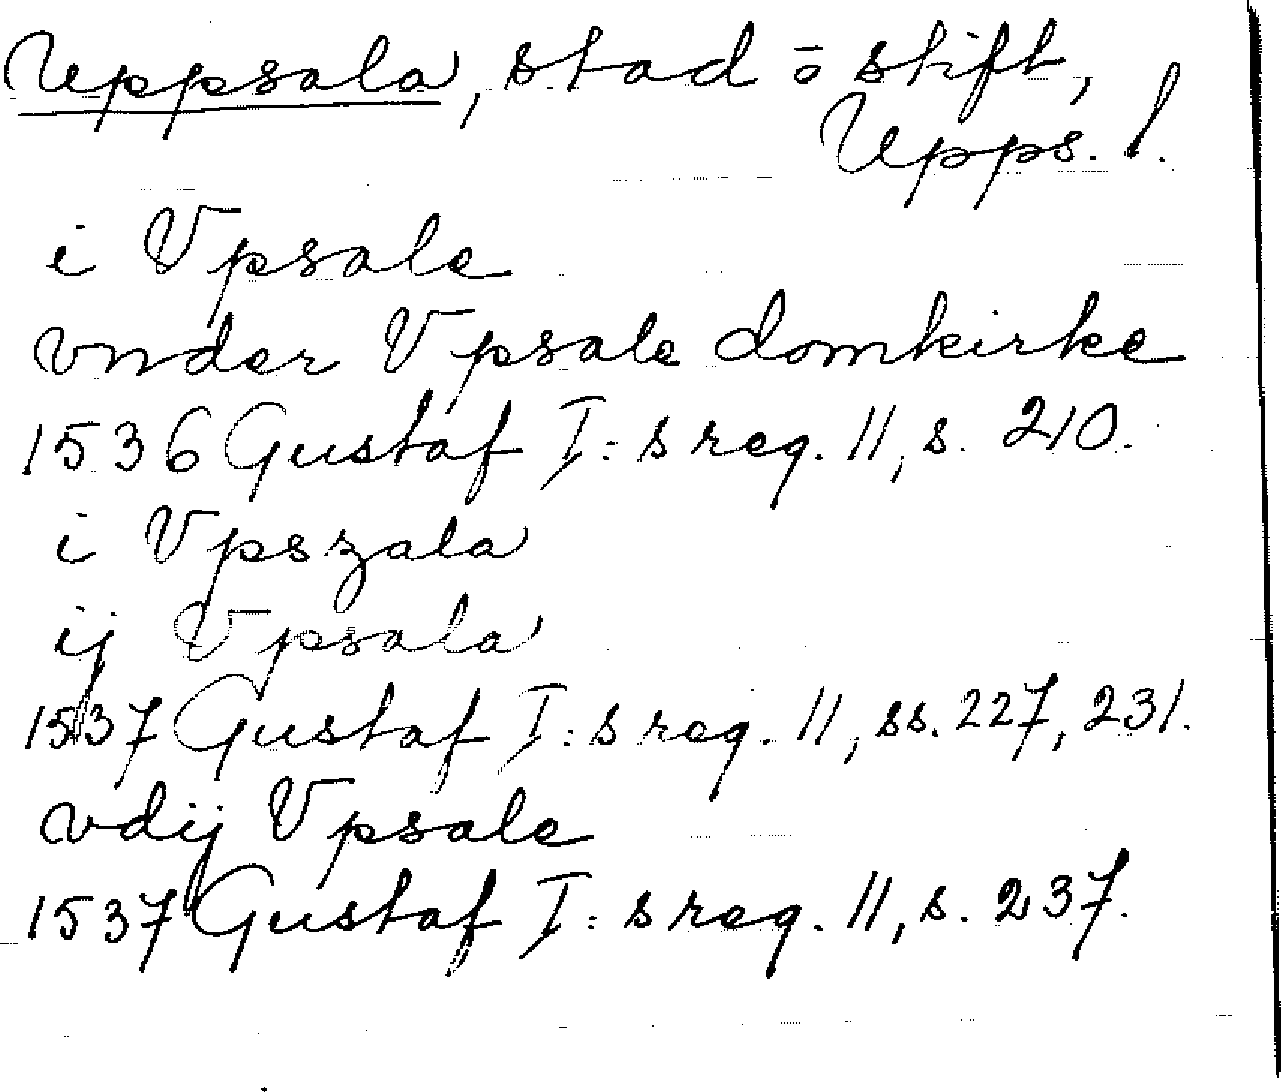 Uppsala, stad o stift,
Upps. l.
i Vpsale
vnder Vpsale domkirke
1536 Gustaf I:s reg. 11, s. 210.
i Vpszala
ij Vpsala
1537 Gustaf I:s reg. 11, ss. 227, 231.
vdij Vpsale
1537 Gustaf I:s reg. 11, s. 237.